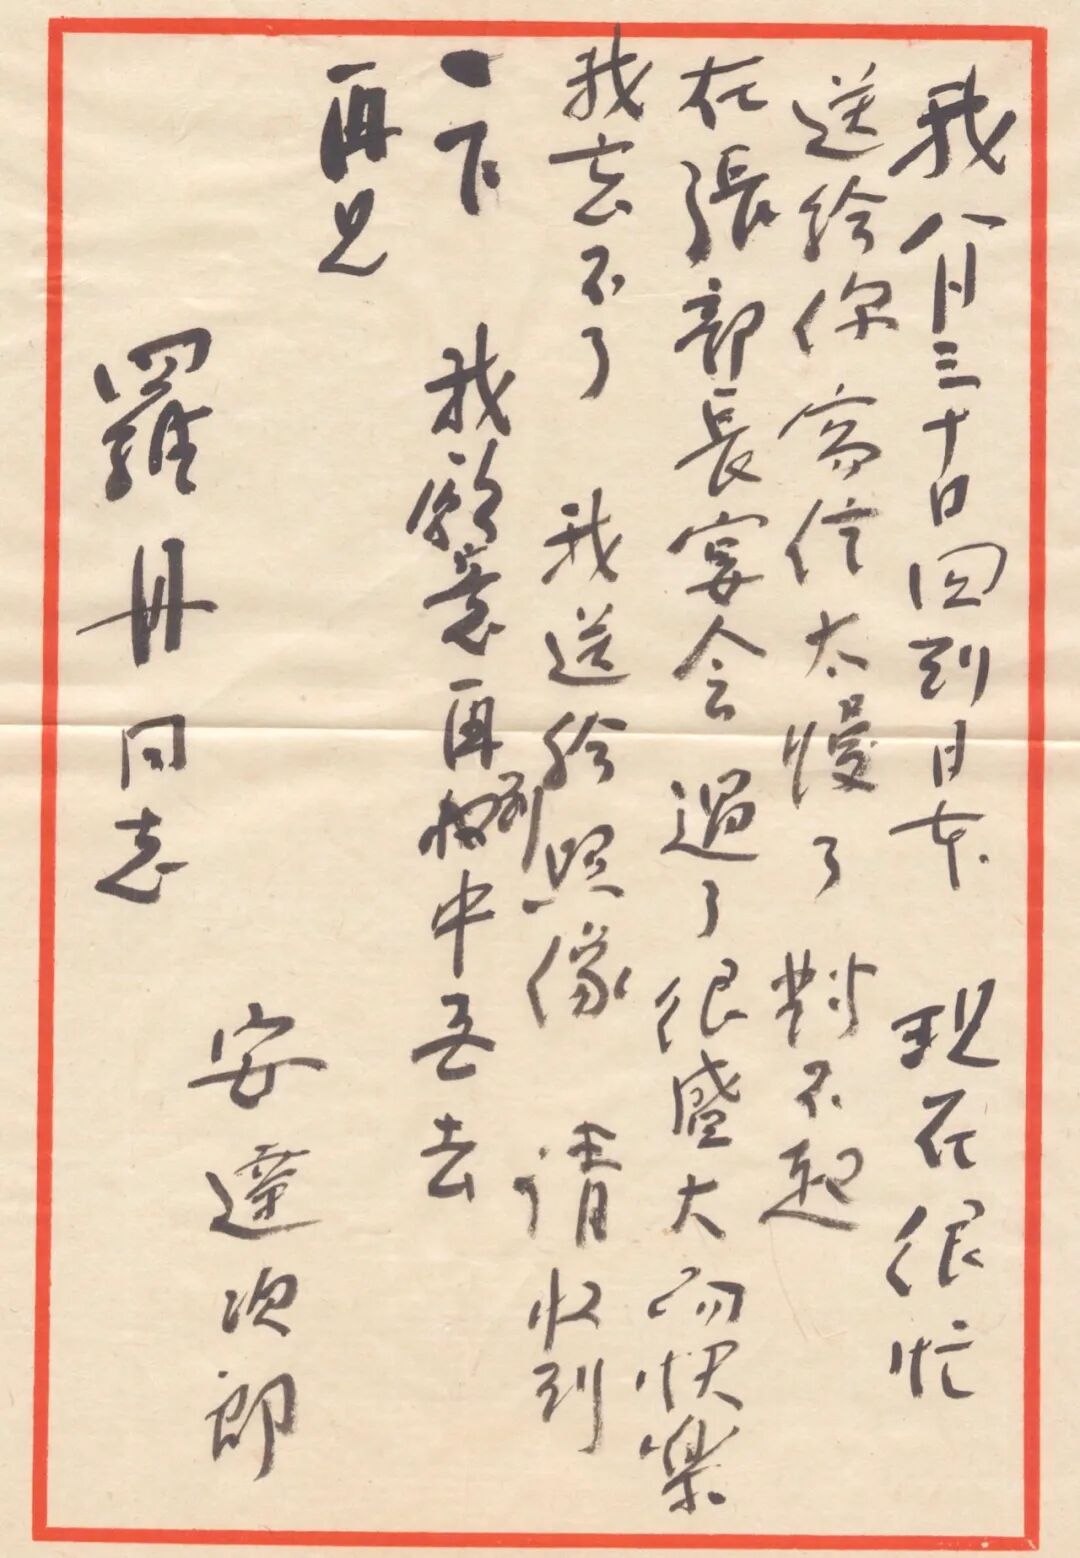 我八月三十日回到日本 現在很忙
送给你寫信太慢了 對不起
在張部長宴会 過了很盛大而快樂
我去不了 我送给照像 请收到
一下 我願意再到中吾去
再见
羅丹同志
安達次郎